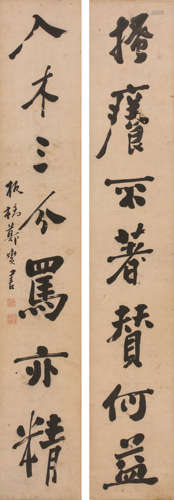 搔癢不著贊何益
入木三分罵亦精
板橋鄭燮書